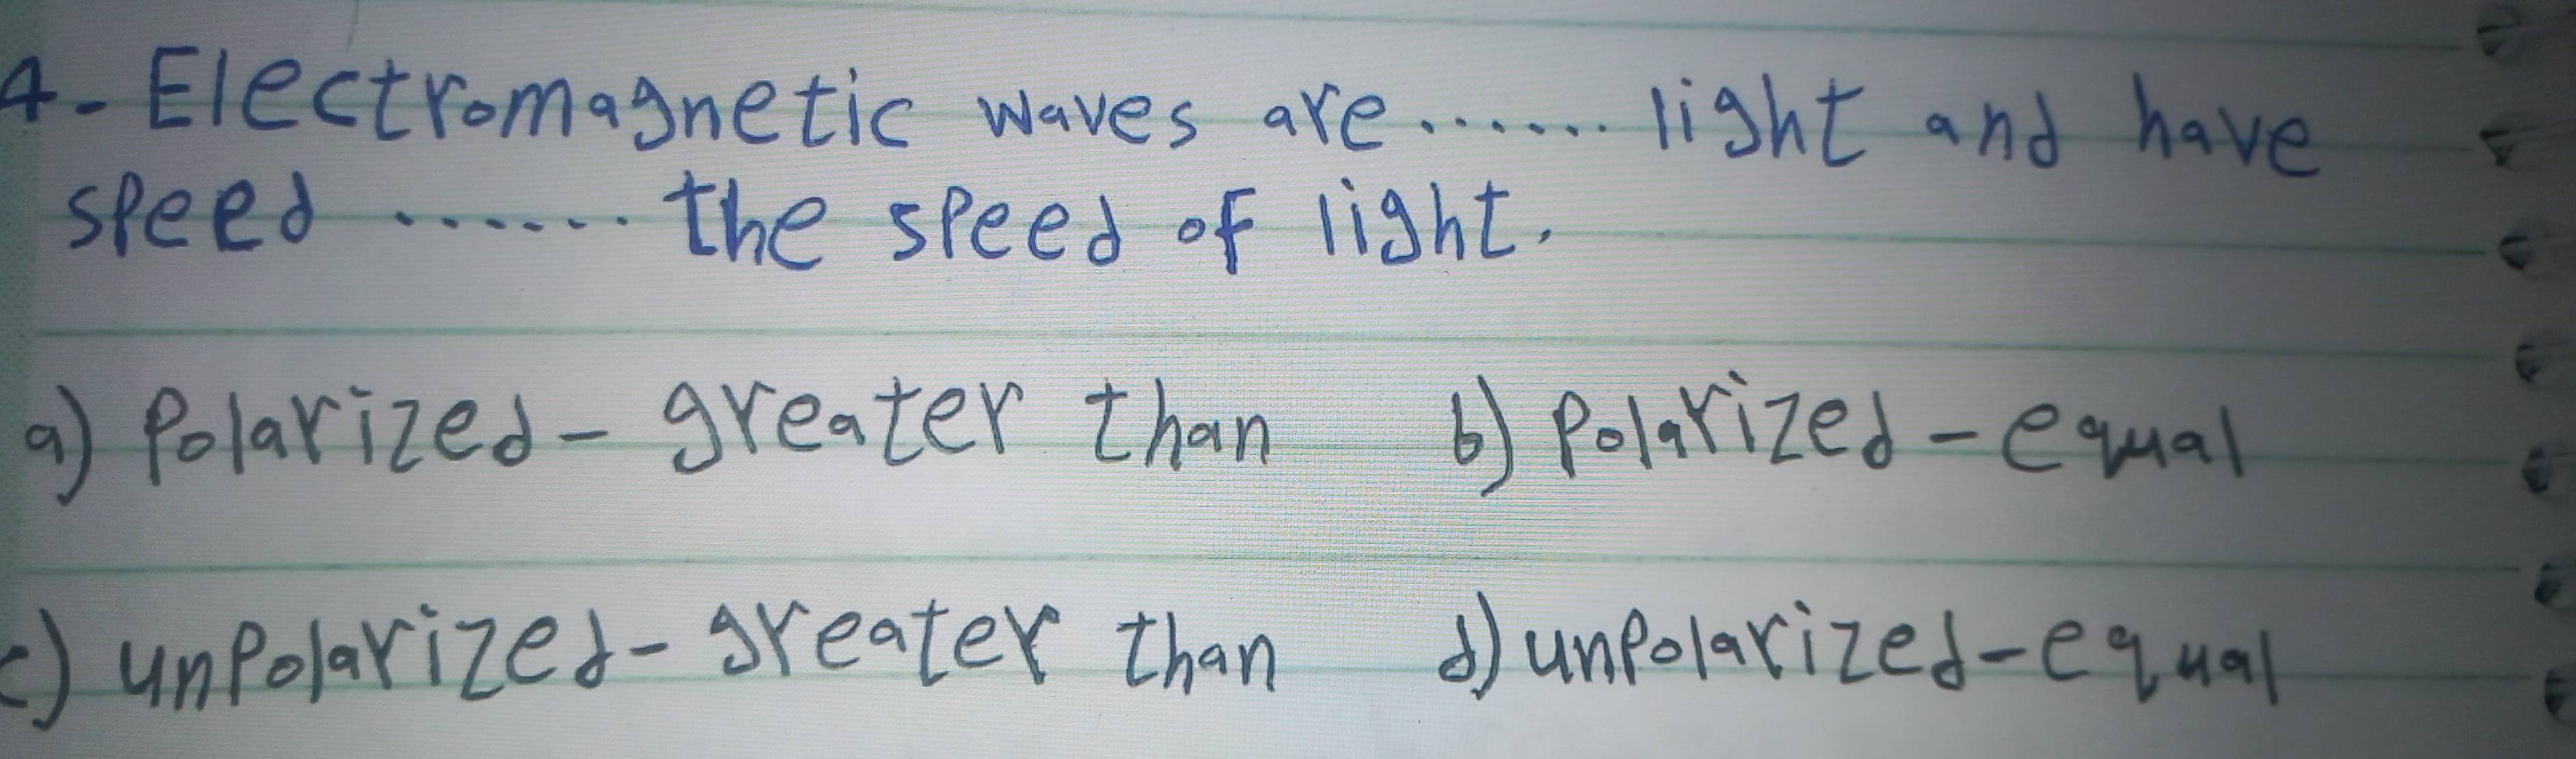 4- Electromagnetic waves are....... light and have
speed ....... the speed of light.
a) Polarized- greater than b) Polarized-equal
c) unpolarized- greater than d) unpolarized-equal